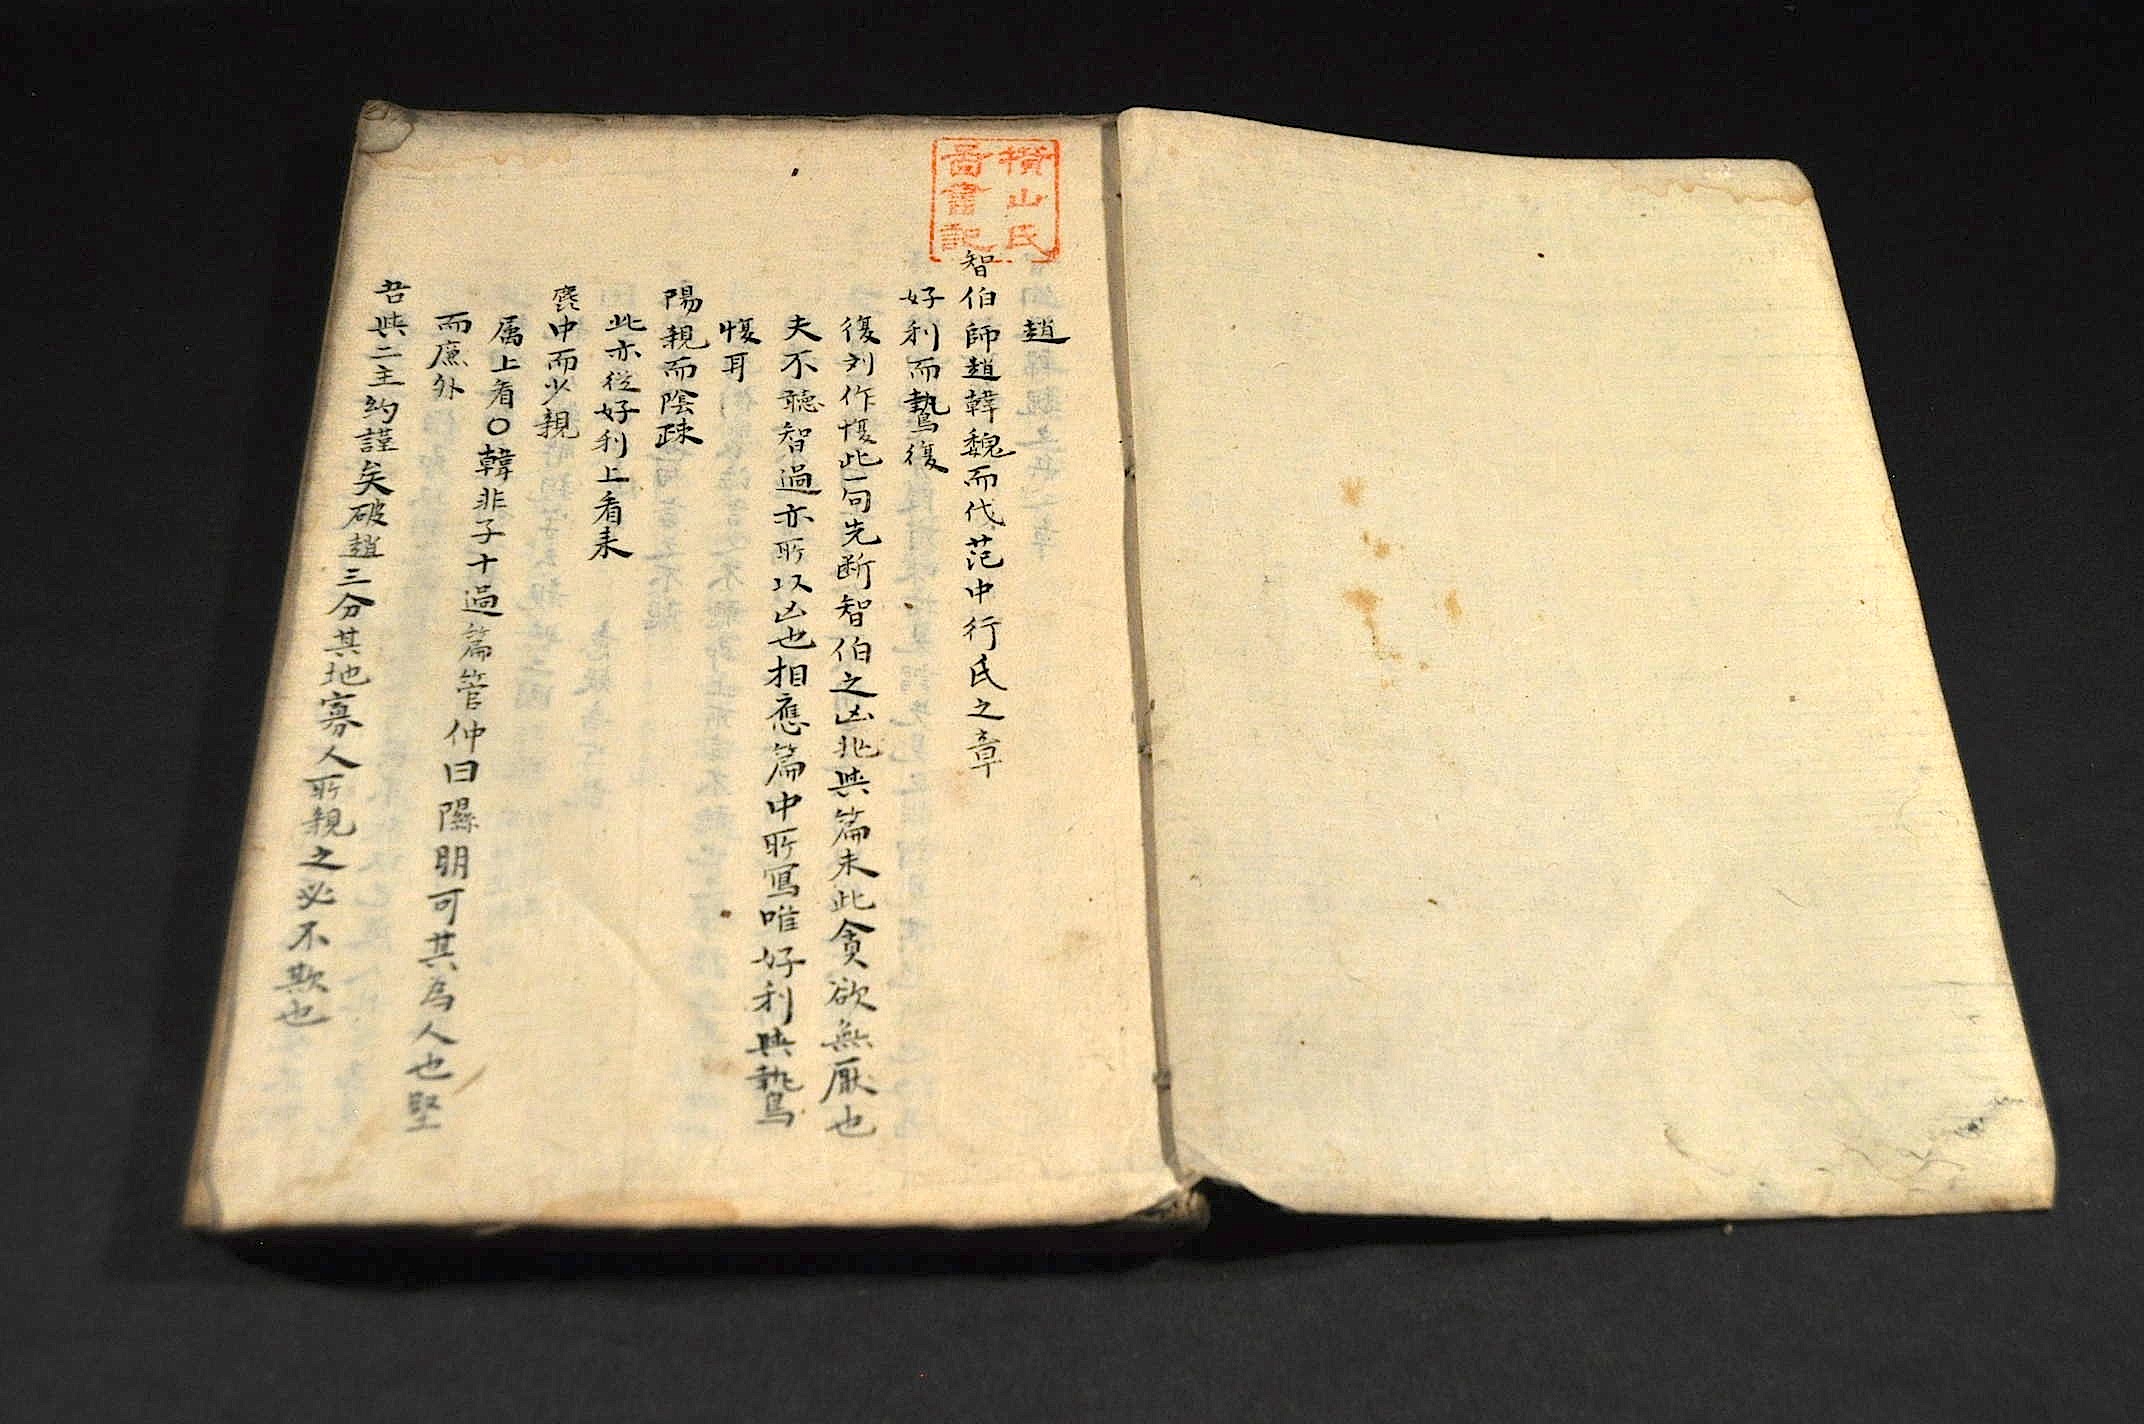 横山氏
圖書記
趙
智伯師趙韓魏而伐范中行氏之章
好利而鷙復
復列作愎此一句先断智伯之凶兆與篇末此貪欲無厭也
夫不聴智過亦所以凶也相應篇中所寫唯好利與鷙
愎耳
陽親而陰疎
此亦從好利上看来
麁中而少親
属上看○韓非子十過篇管仲曰隰朋可其為人也堅
而廉外
吾與二主約謹矣破趙三分其地寡人所親之必不欺也